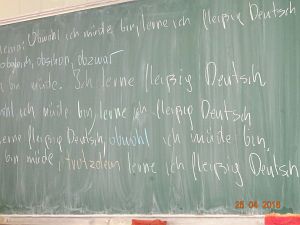 Obwohl ich müde bin, lerne ich fleißig Deutsch
obgleich, obschon, obzwar
bin müde. Ich lerne fleißig Deutsch
ich müde bin, lerne ich fleißig Deutsch
lerne fleißig Deutsch, obwohl ich müde bin.
bin müde, trotzdem lerne ich fleißig Deutsch
25 04 2018